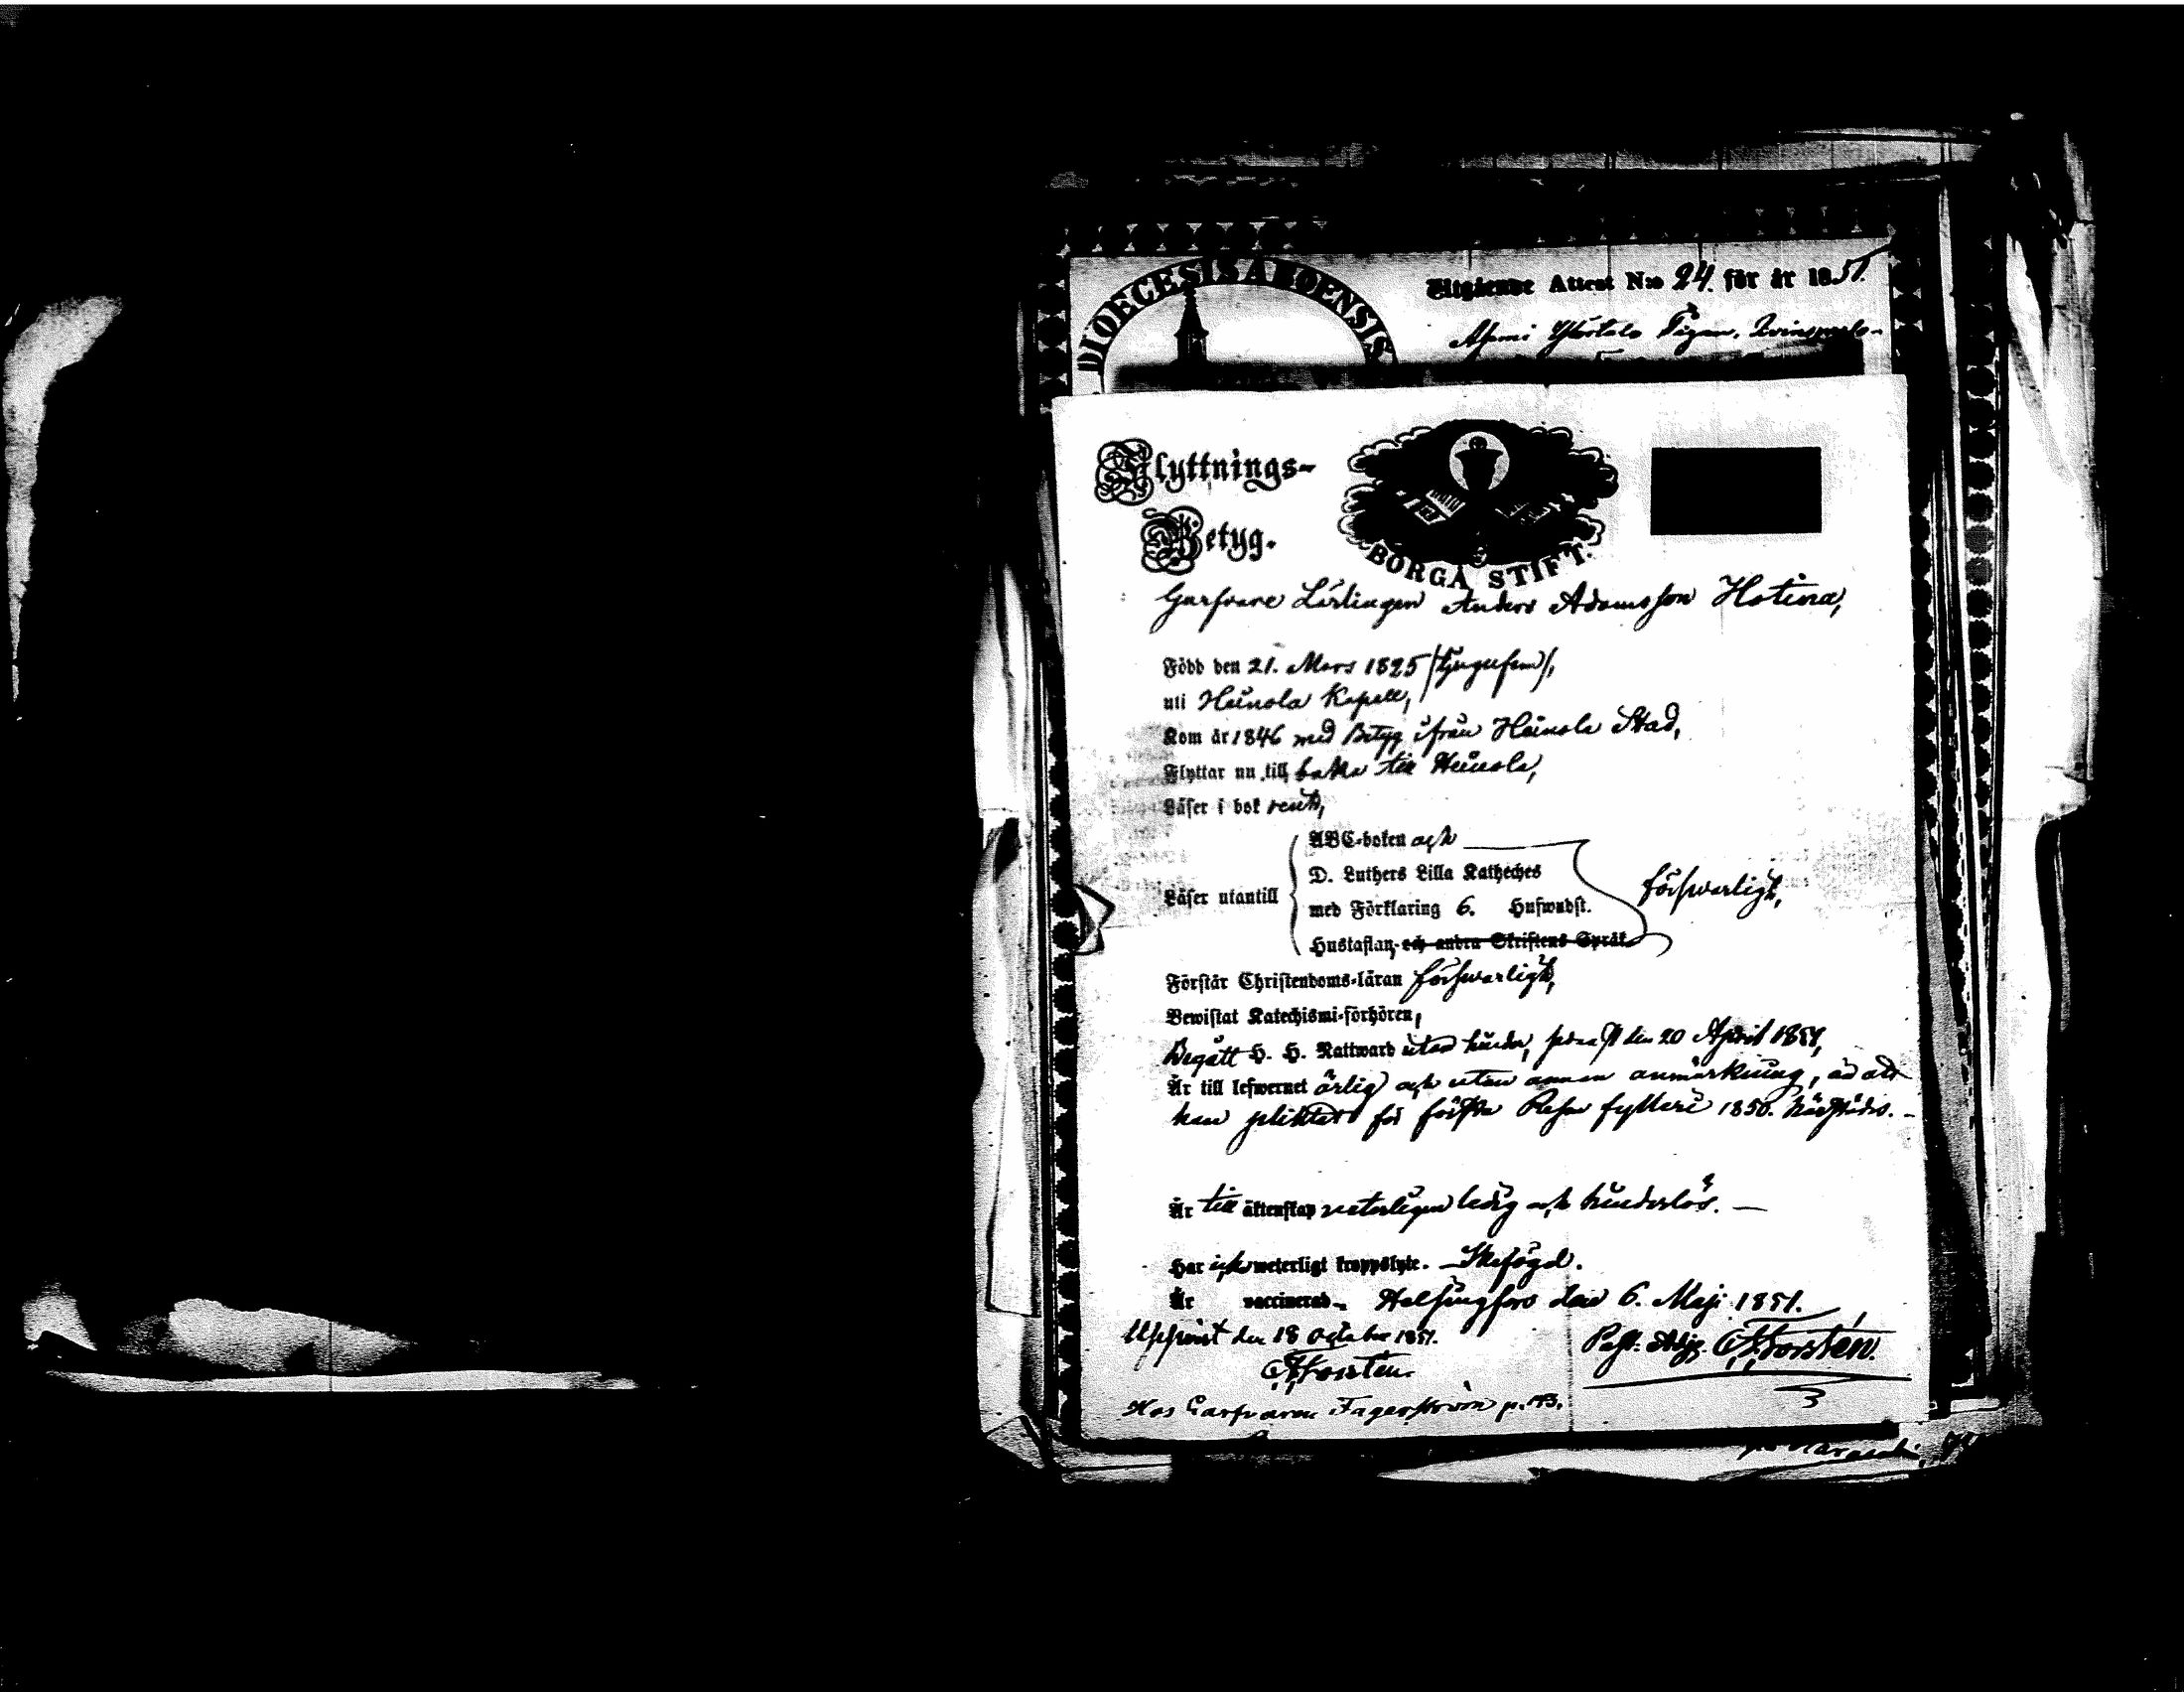 DIOECESIS ABOENSIS
Utgående Attest N:o 24. för år 1851.
Flyttnings-
Betyg.
BORGÅ STIFT.
Garfvare Lärlingen Anders Adamsson Hotina,
Född den 21. Mars 1825 /tjugufem/,
uti Heinola Kapell,
Kom år 1846 med Betyg ifrån Heinola Stad,
Flyttar nu till baka till Heinola,
Läser i bok rent,
ABC-boken och
D. Luthers Lilla Katheches
Läser utantill
med Förklaring 6. Hufwudst.
försvarligt,
Hustaflan, och andra Skriftens Språk
Förstår Christendoms-läran försvarligt,
Bewistat Katechismi-förhören,
Begått H. H. Nattward utan hinder, senast den 20 April 1851,
Är till lefwernet ärlig och utan annan anmärkning, än att
han pliktat för första Resan fylleri 1850. härstädes. -
Är till äktenskap veterligen ledig och hinderlös. —
Har icke weterligt kroppslyte. - Skefögd.
Är vaccinerad. Helsingfors den 6. Maji 1851.
Uppvist den 18 October 1851. Past: Adj. Forstén.
Forstén.
Hos Garfvaren Fagerström p. 173.